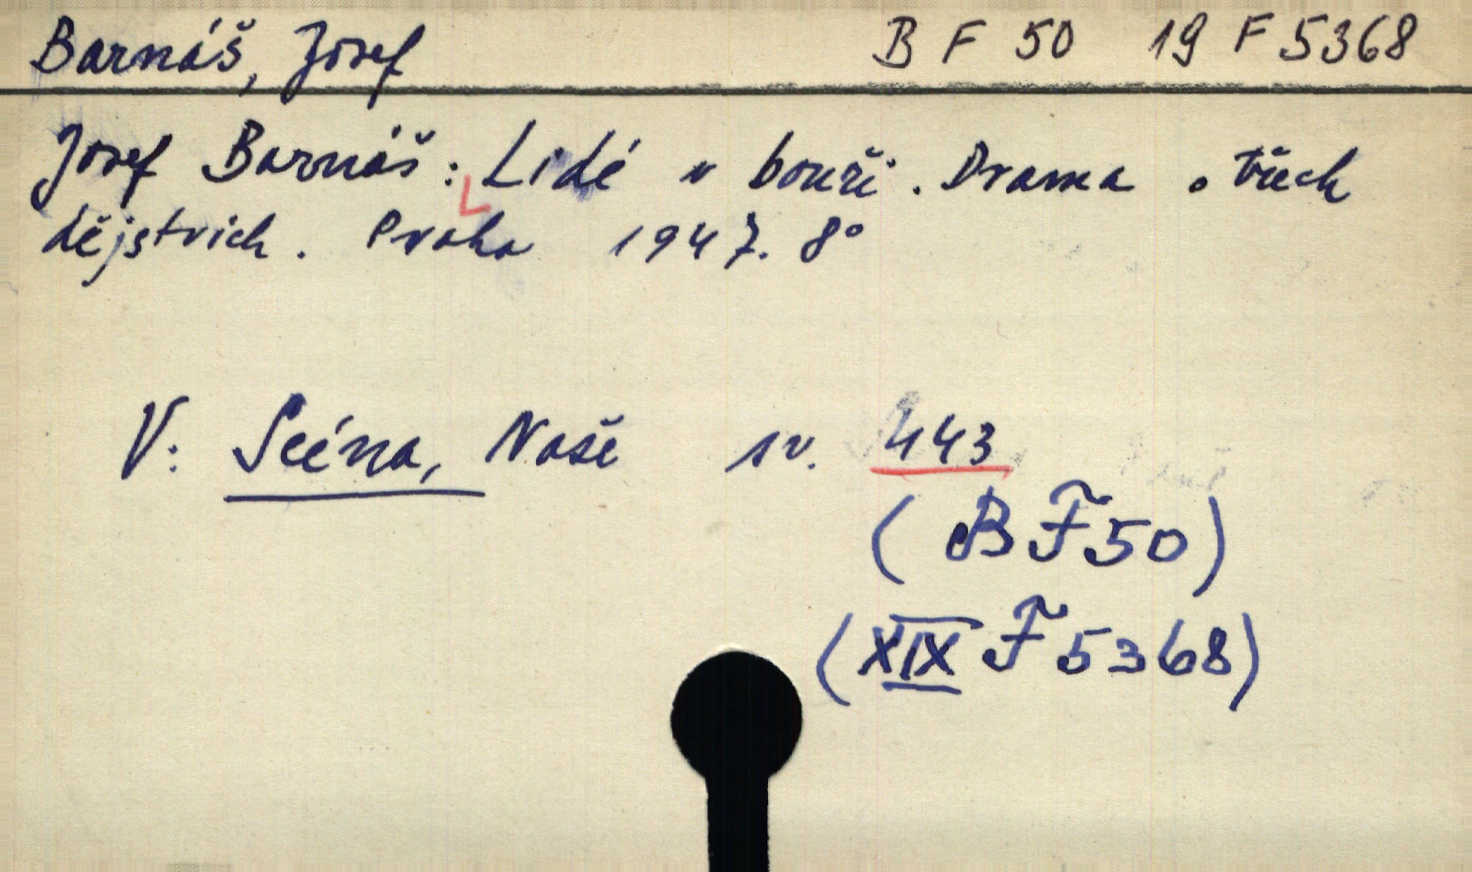 Barnáš, Josef B F 50 19 F 5368
Josef Barnáš: Lidé v bouři. Drama o třech
dějstvích. Praha 1947. 8°
V: Scéna, Naše sv. 443
(B F 50)
(XIX F 5368)